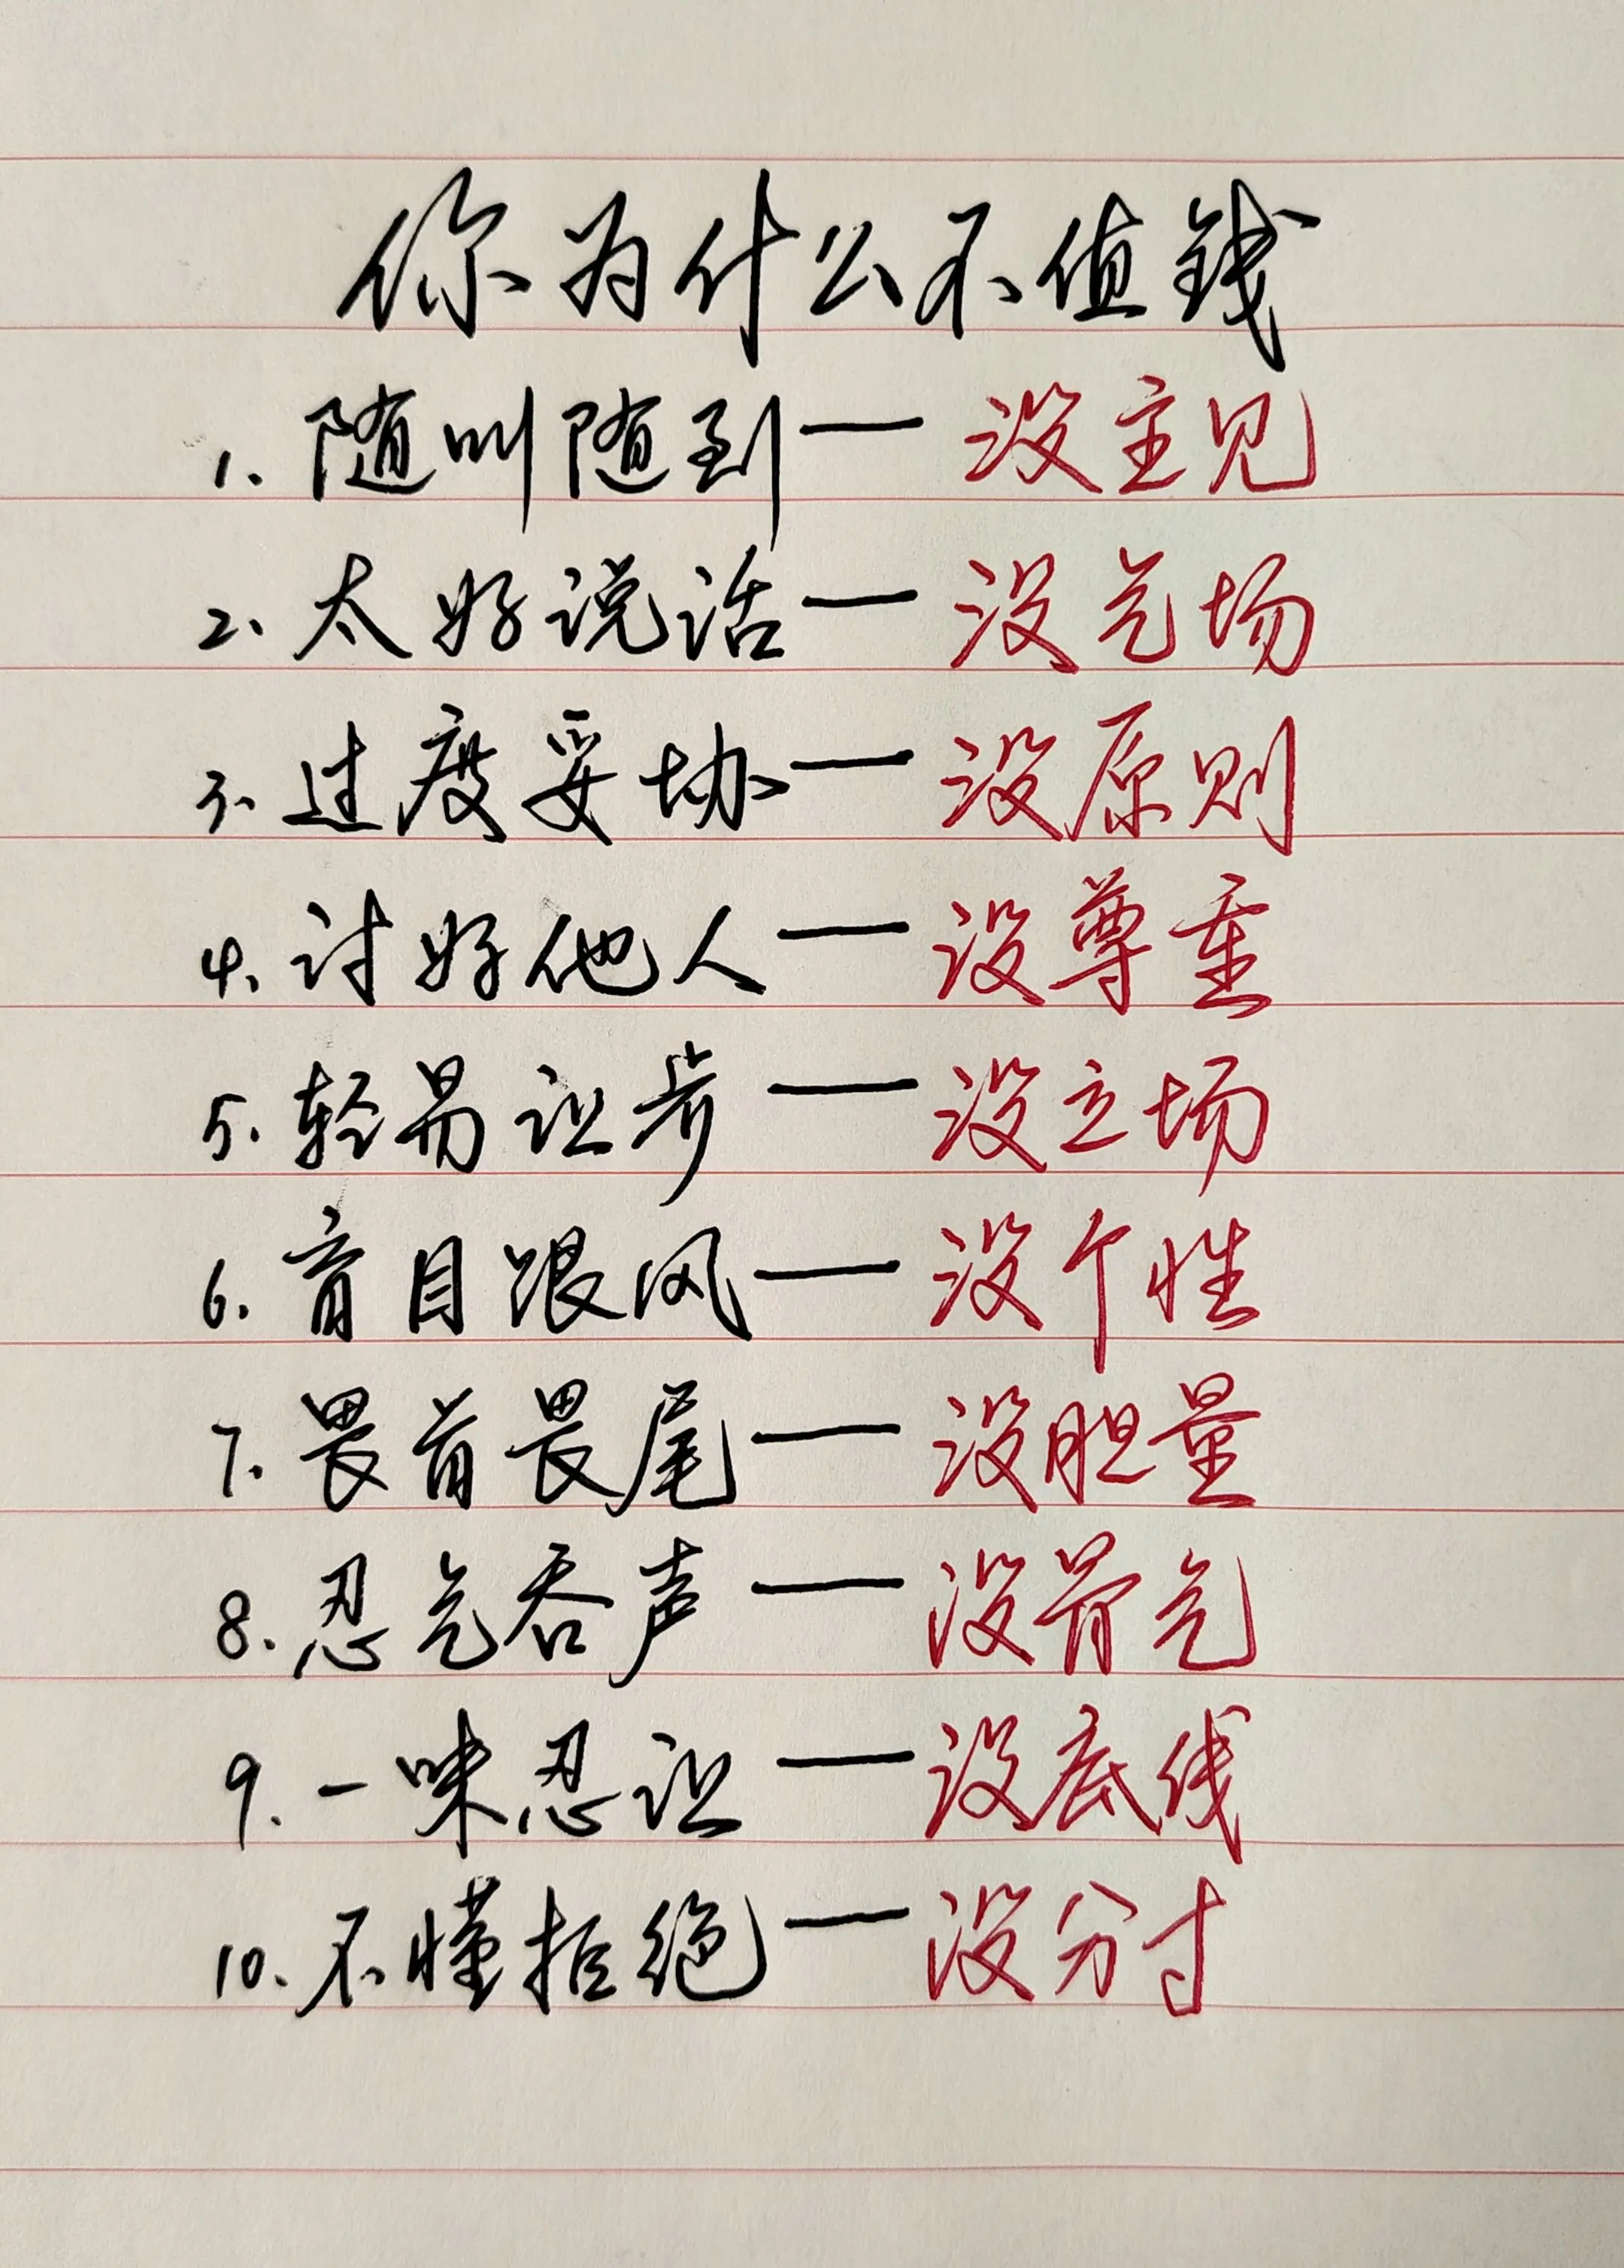 你为什么不值钱
1. 随叫随到——没主见
2、太好说话——没气场
3、过度妥协——没原则
4、讨好他人——没尊重
5、轻易让步——没立场
6、盲目跟风——没个性
7、畏首畏尾——没胆量
8. 忍气吞声——没骨气
9. 一味忍让——没底线
10、不懂拒绝——没分寸